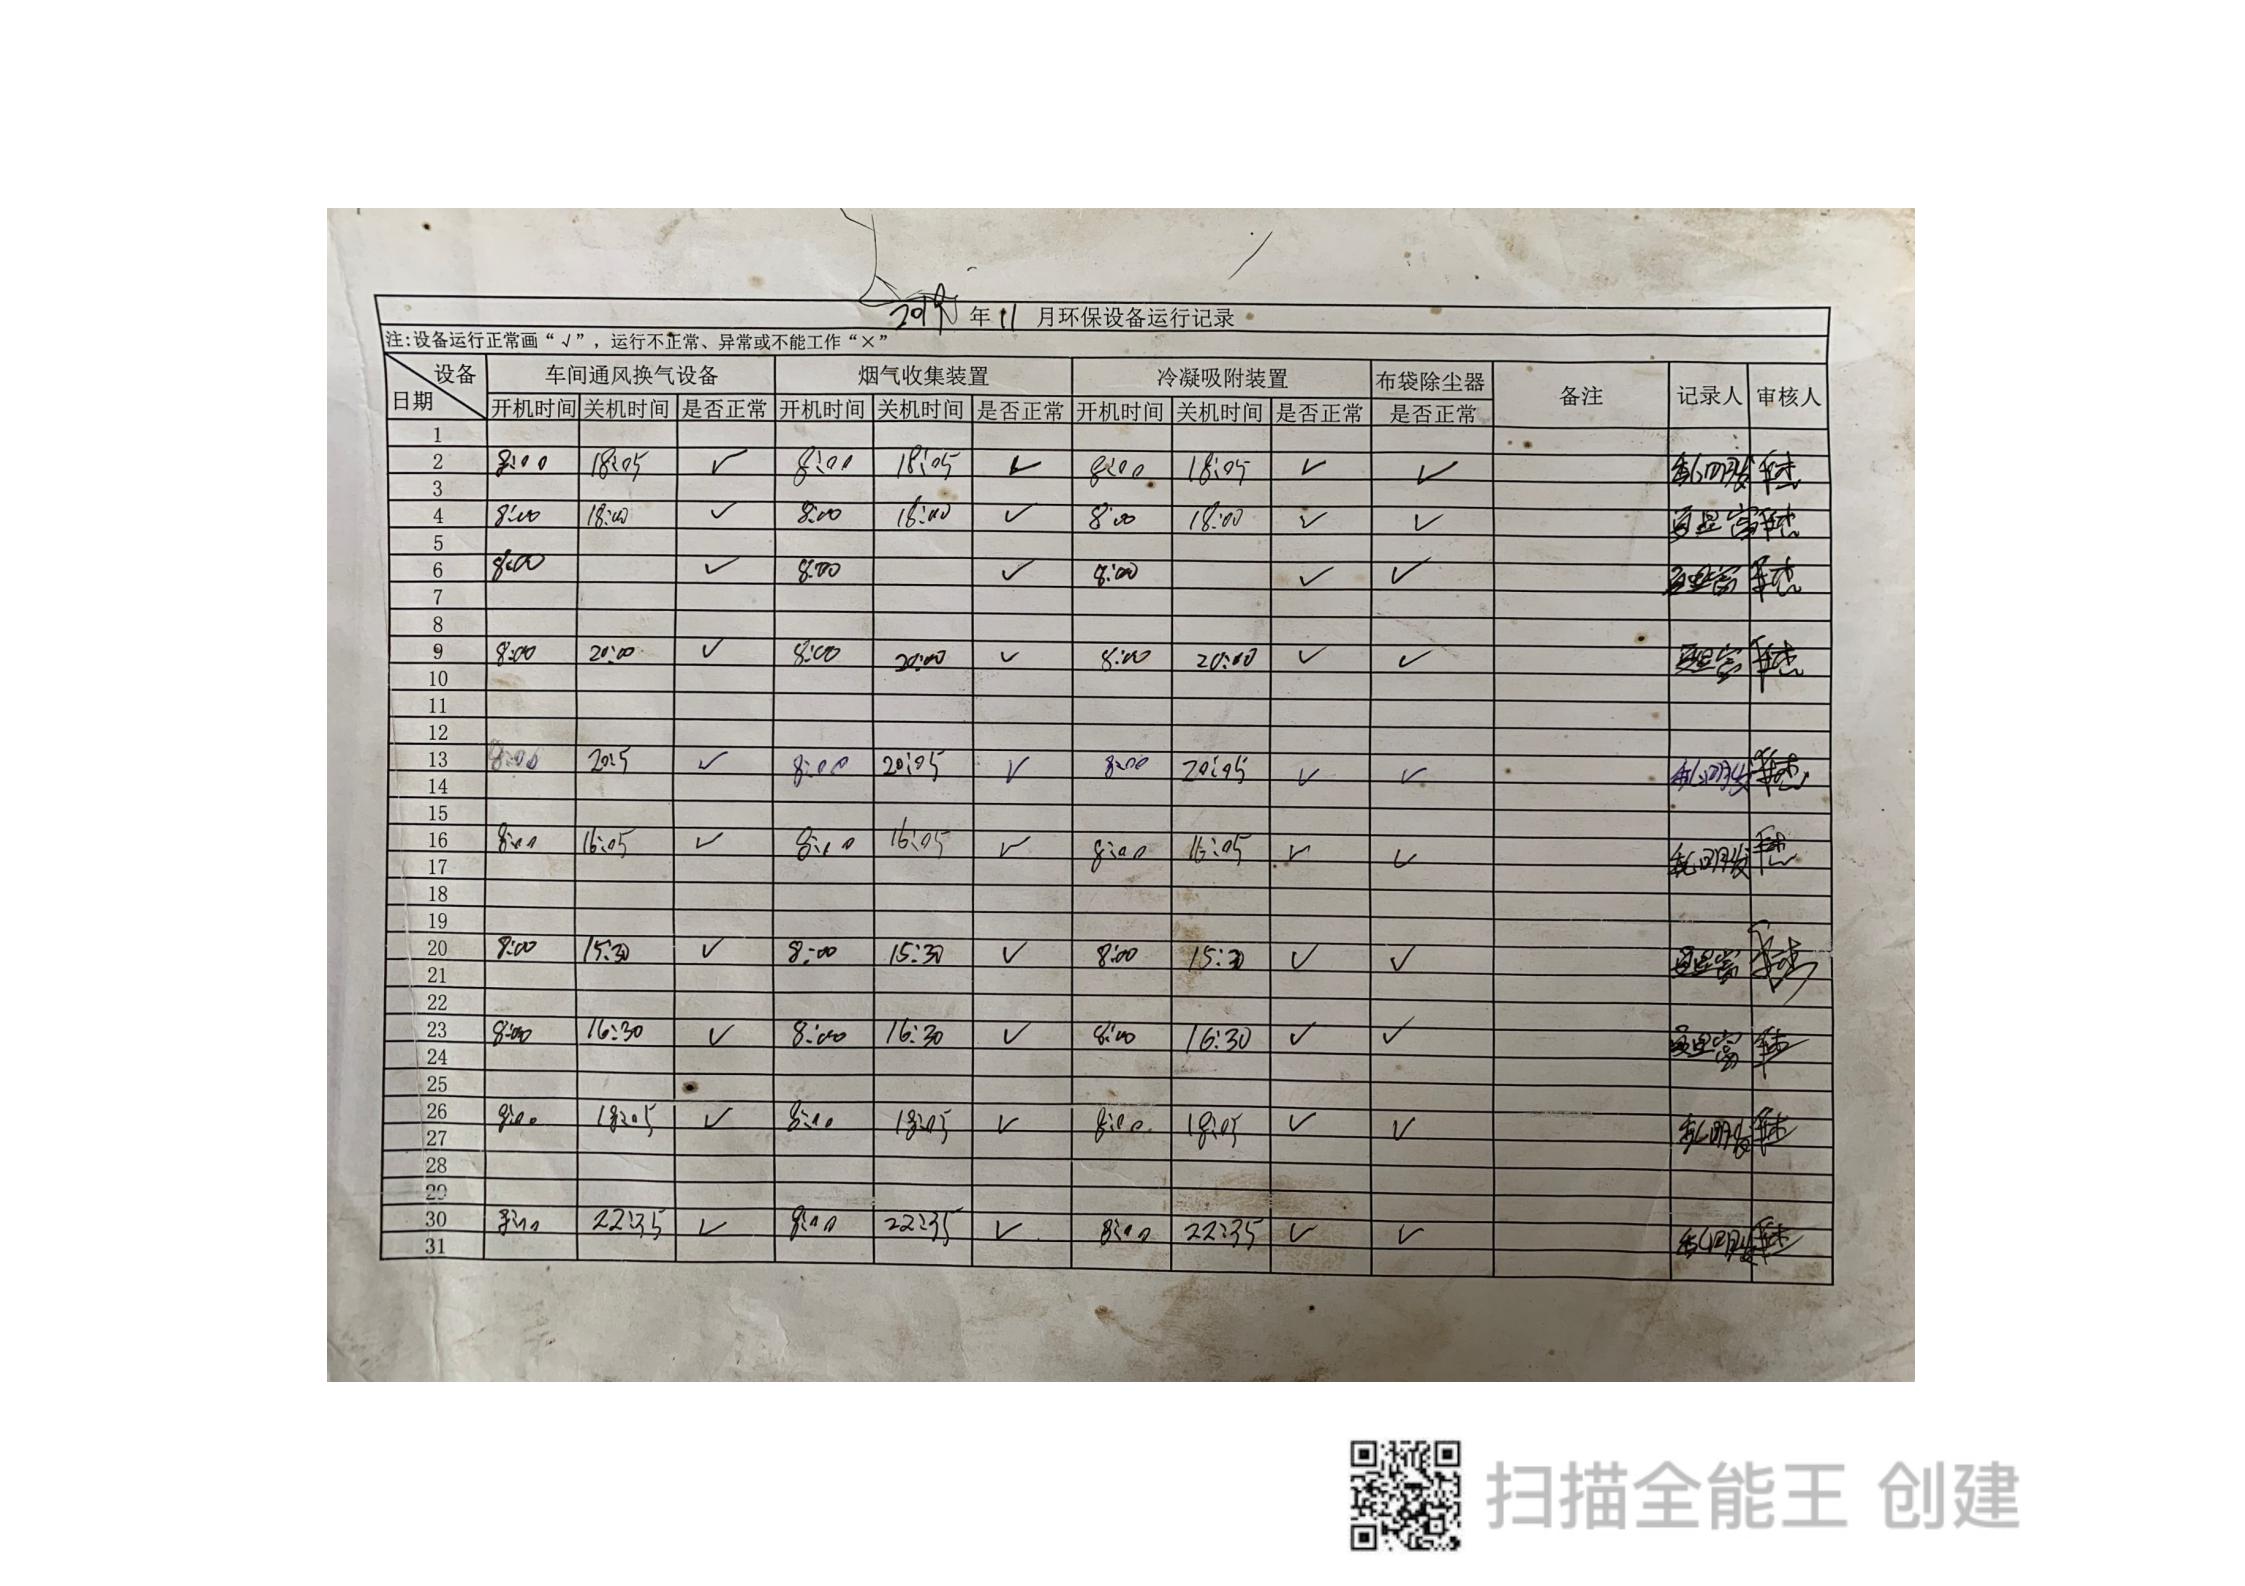 2019 年 11 月环保设备运行记录
注:设备运行正常画“√”，运行不正常、异常或不能工作“×”
设备 车间通风换气设备 烟气收集装置 冷凝吸附装置 布袋除尘器 备注 记录人 审核人
日期 开机时间 关机时间 是否正常 开机时间 关机时间 是否正常 开机时间 关机时间 是否正常 是否正常
1
2 8:00 18:05 √ 8:00 18:05 √ 8:00 18:05 √ √
3
4 8:00 18:00 √ 8:00 18:00 √ 8:00 18:00 √ √
5
6 8:00 √ 8:00 √ 8:00 √ √
7
8
9 8:00 20:00 √ 8:00 20:00 √ 8:00 20:00 √ √
10
11
12
13 8:00 20:5 √ 8:00 20:05 √ 8:00 20:05 √ √
14
15
16 8:00 16:05 √ 8:00 16:05 √ 8:00 16:05 √ √
17
18
19
20 8:00 15:30 √ 8:00 15:30 √ 8:00 15:30 √ √
21
22
23 8:00 16:30 √ 8:00 16:30 √ 8:00 16:30 √ √
24
25
26 8:00 18:05 √ 8:00 18:05 √ 8:00 18:05 √ √
27
28
29
30 8:00 22:35 √ 8:00 22:35 √ 8:00 22:35 √ √
31
扫描全能王 创建